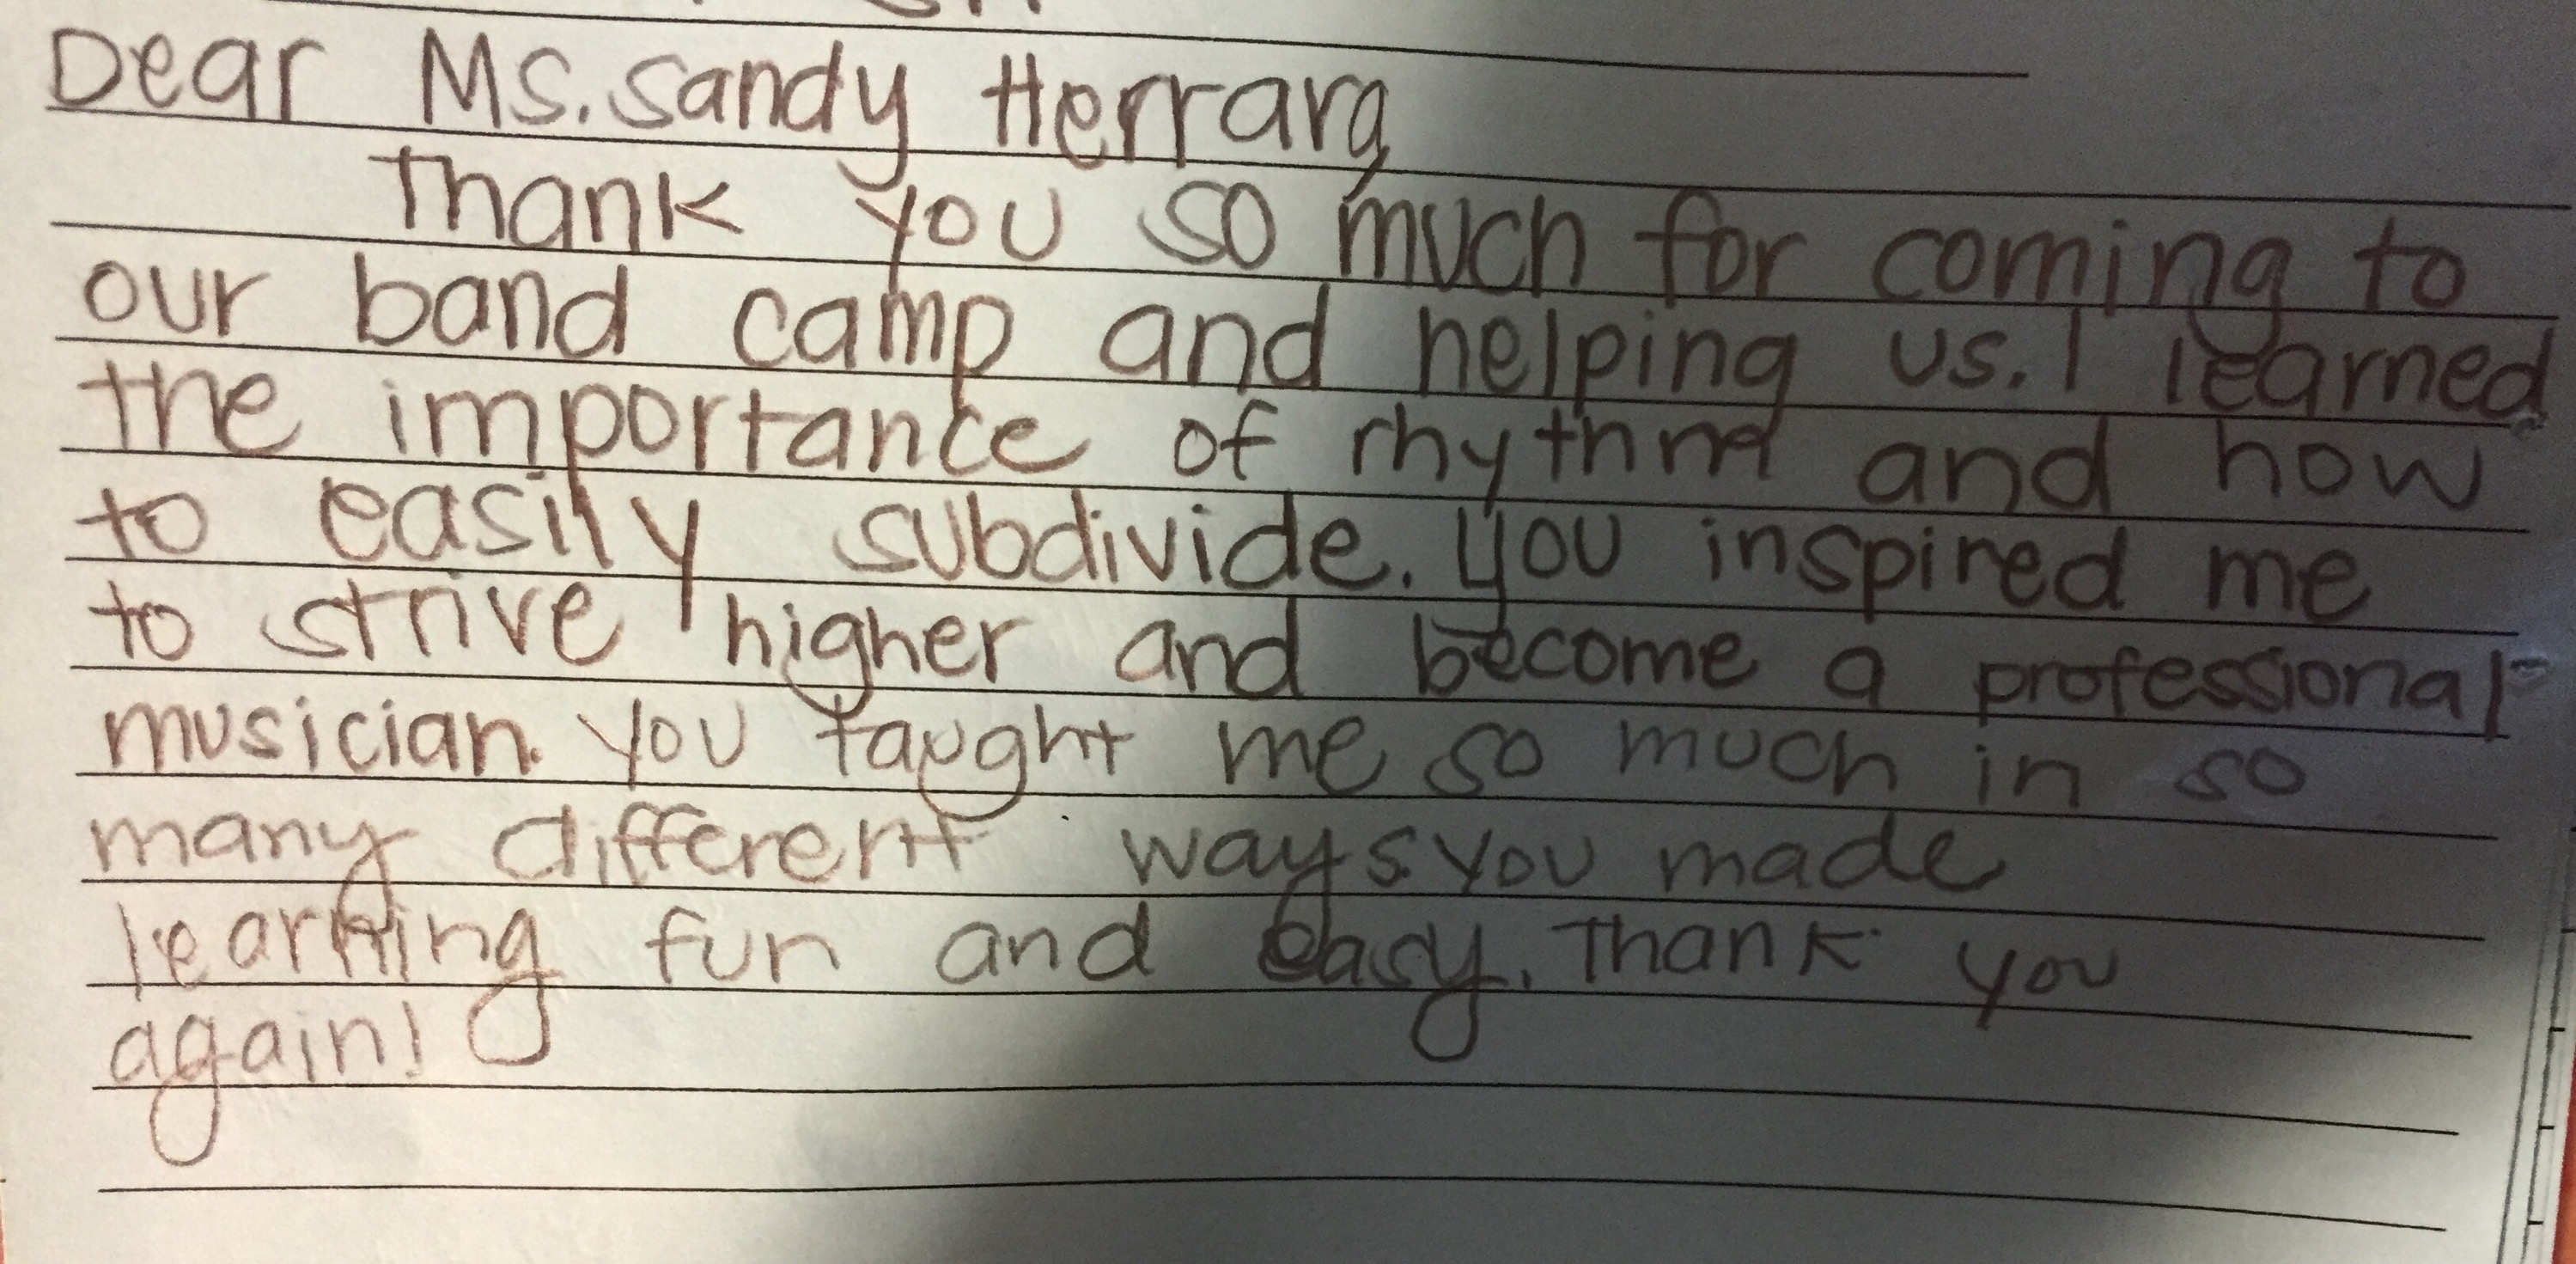 Dear Ms. Sandy Herrara,
Thank you so much for coming to
our band camp and helping us. I learned
the importance of rhythm and how
to easily subdivide. You inspired me
to strive higher and become a professional
musician. You taught me so much in so
many different ways. You made
learning fun and easy. Thank you
again!